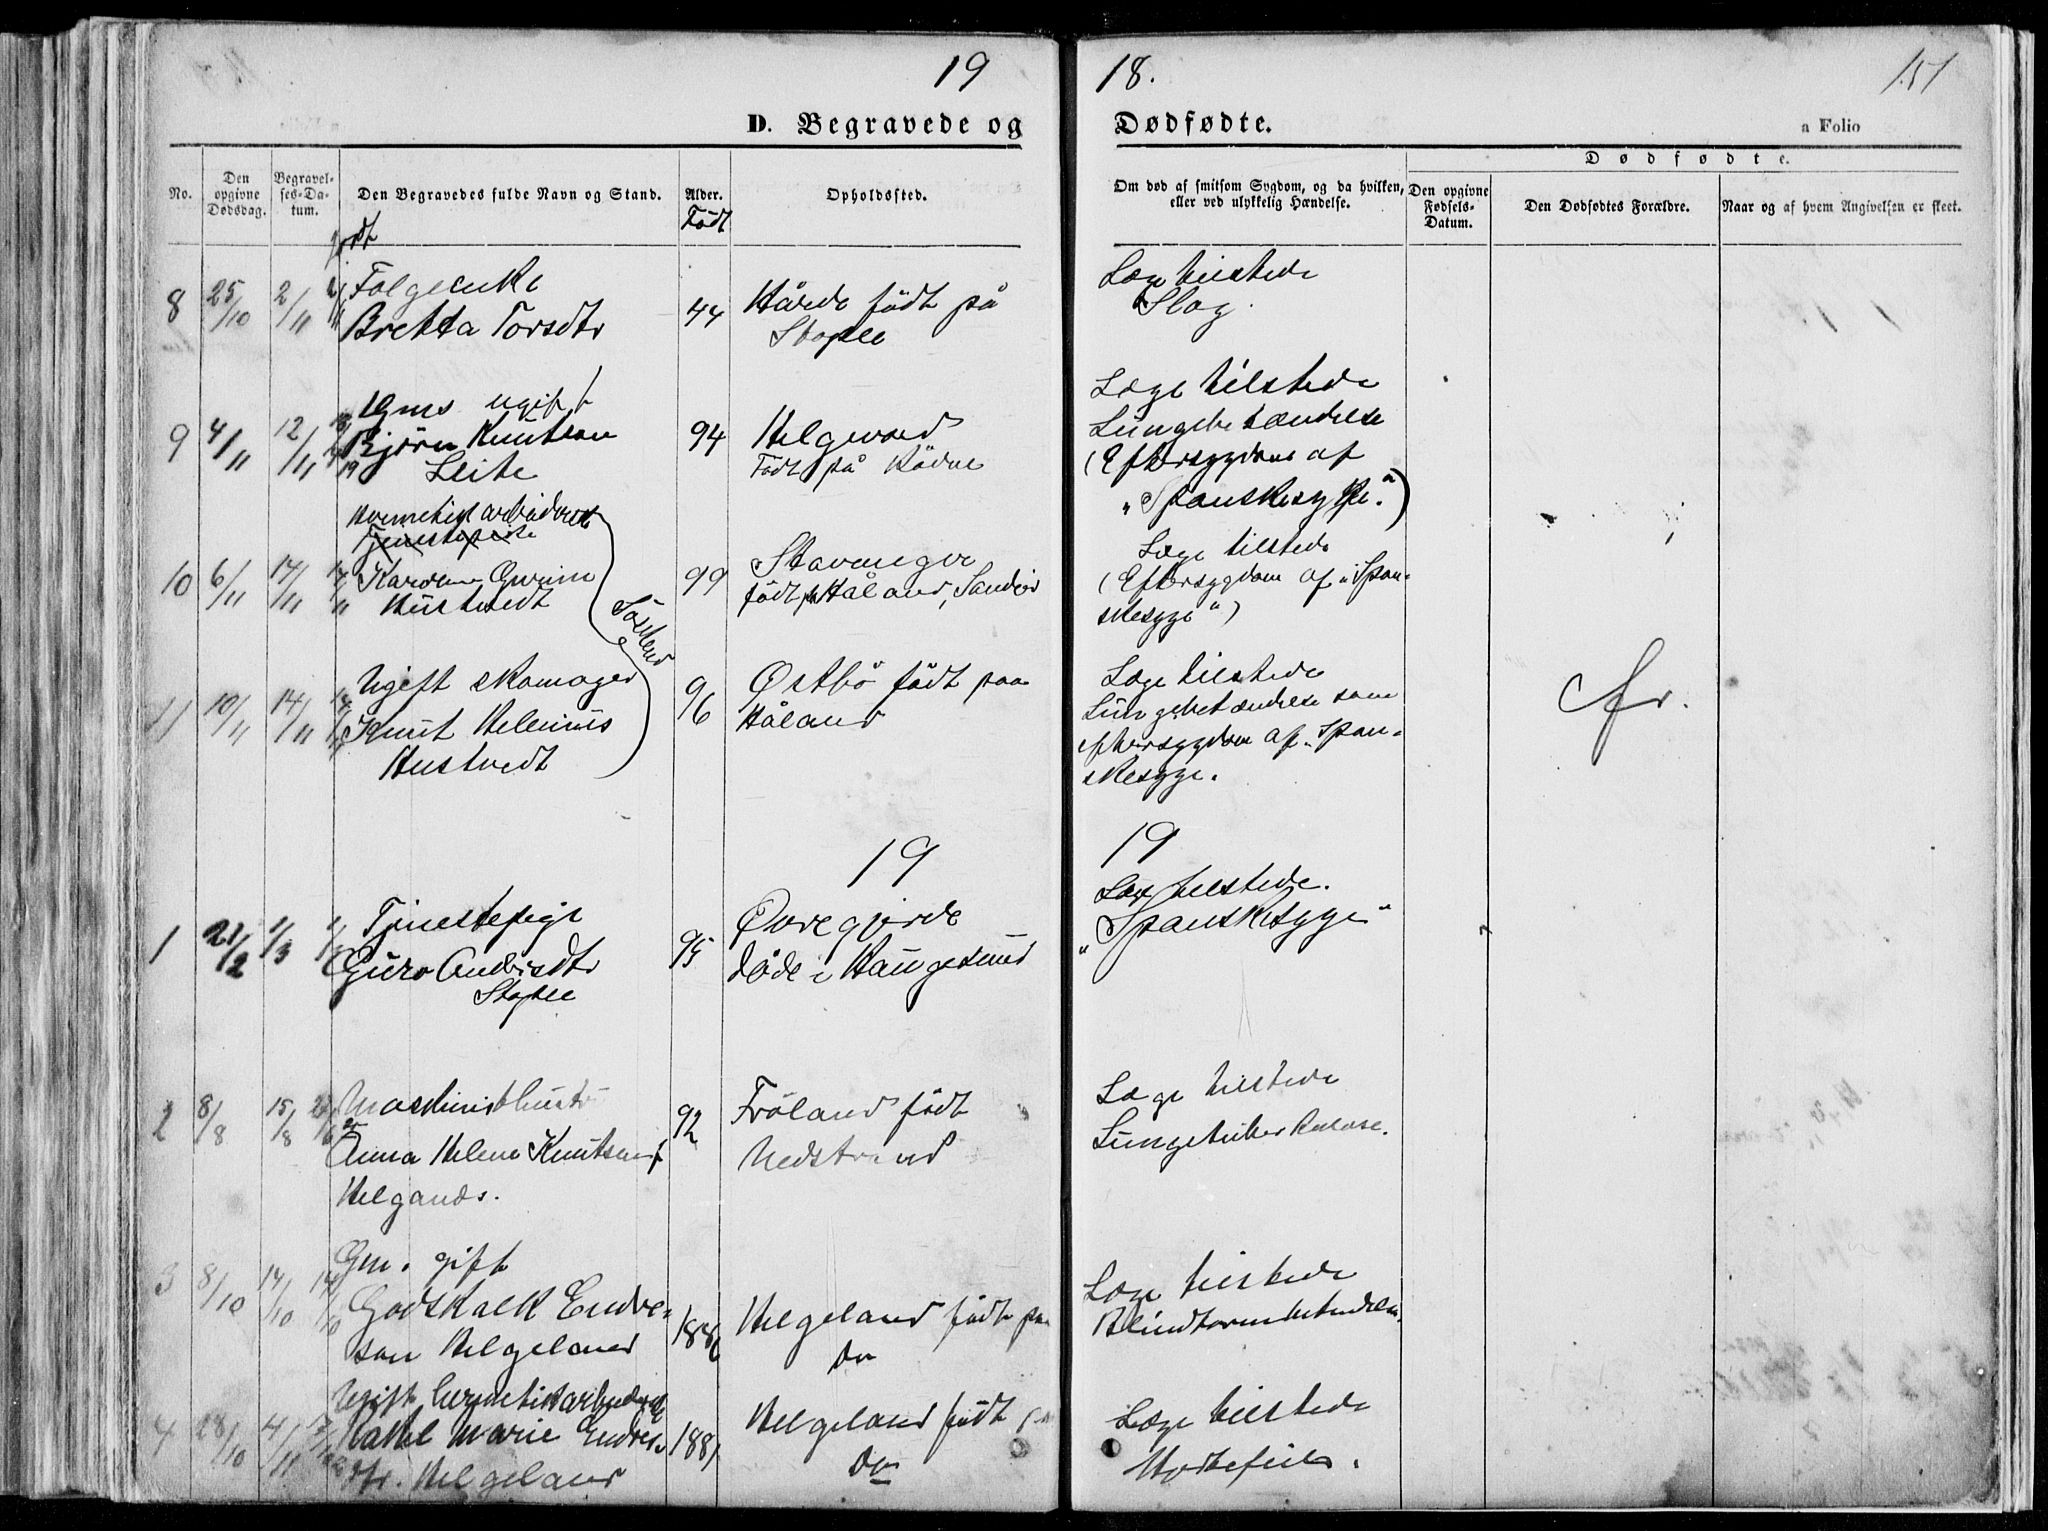 19 18. 151
D. Begravede og Dødfødte.
a Folio
No.
Den opgivne Dødsdag.
Begravelses-Datum.
Den Begravedes fulde Navn og Stand.
Alder.
Født
Opholdssted.
Om død af smitsom Sygdom, og da hvilken, eller ved ulykkelig Hændelse.
Dødfødte.
Den opgivne Fødsels-Datum.
Den Dødfødtes Forældre.
Naar og af hvem Angivelsen er skeet.
8 25/10 2/11
Folgeenke
Bretta Torsdtr
44
Hårde født på
Stople
Læge tilstede
Slag.
9 4/11 12/11
Gms ugift
Bjørn Knutson
Leite
94
Helgevold
Født på Rødne
Læge tilstede
Lungebetændelse
(Eftersygdom af
"Spanskesyge.")
10 6/11 14/11
Hermetikarbeiderske
Tjenestepike
Gurine
Hustvedt
99
Stavanger
født på Håland, Sandeid
Læge tilstede
(Eftersygdom af "Span-
skesyge")
Søskend
11 10/11 14/11
Ugift skomager
Knut Helenius
Hustvedt
96
Østbø født paa
Håland
Læge tilstede
Lungebetændelse som
eftersygdom af "Span-
skesyge.
cfr.
19 19
1 21/2 1/3
Tjenestepige
Guro Andrisdtr
Stople
95
Øvregjerde
døde i Haugesund
Læge tilstede.
"Spanskesyge"
2 8/8 15/8
Maskinisthustr
Anna Helene Knutsen f
Helgands.
92
Frøland født
Nedstrand
Læge tilstede
Lungetuberkulose.
3 8/10 14/10 14/10
Gm. gift
Godskalk Endre-
son Helgeland
1886
Helgeland født paa
Do
Læge tilstede
Blindtarmbetendelse.
4 28/10 4/11
Ugift hermetikarbeiderske
Marie
Helgeland
188
Helgeland født
Do
Læge tilstede
Hjertefeil.